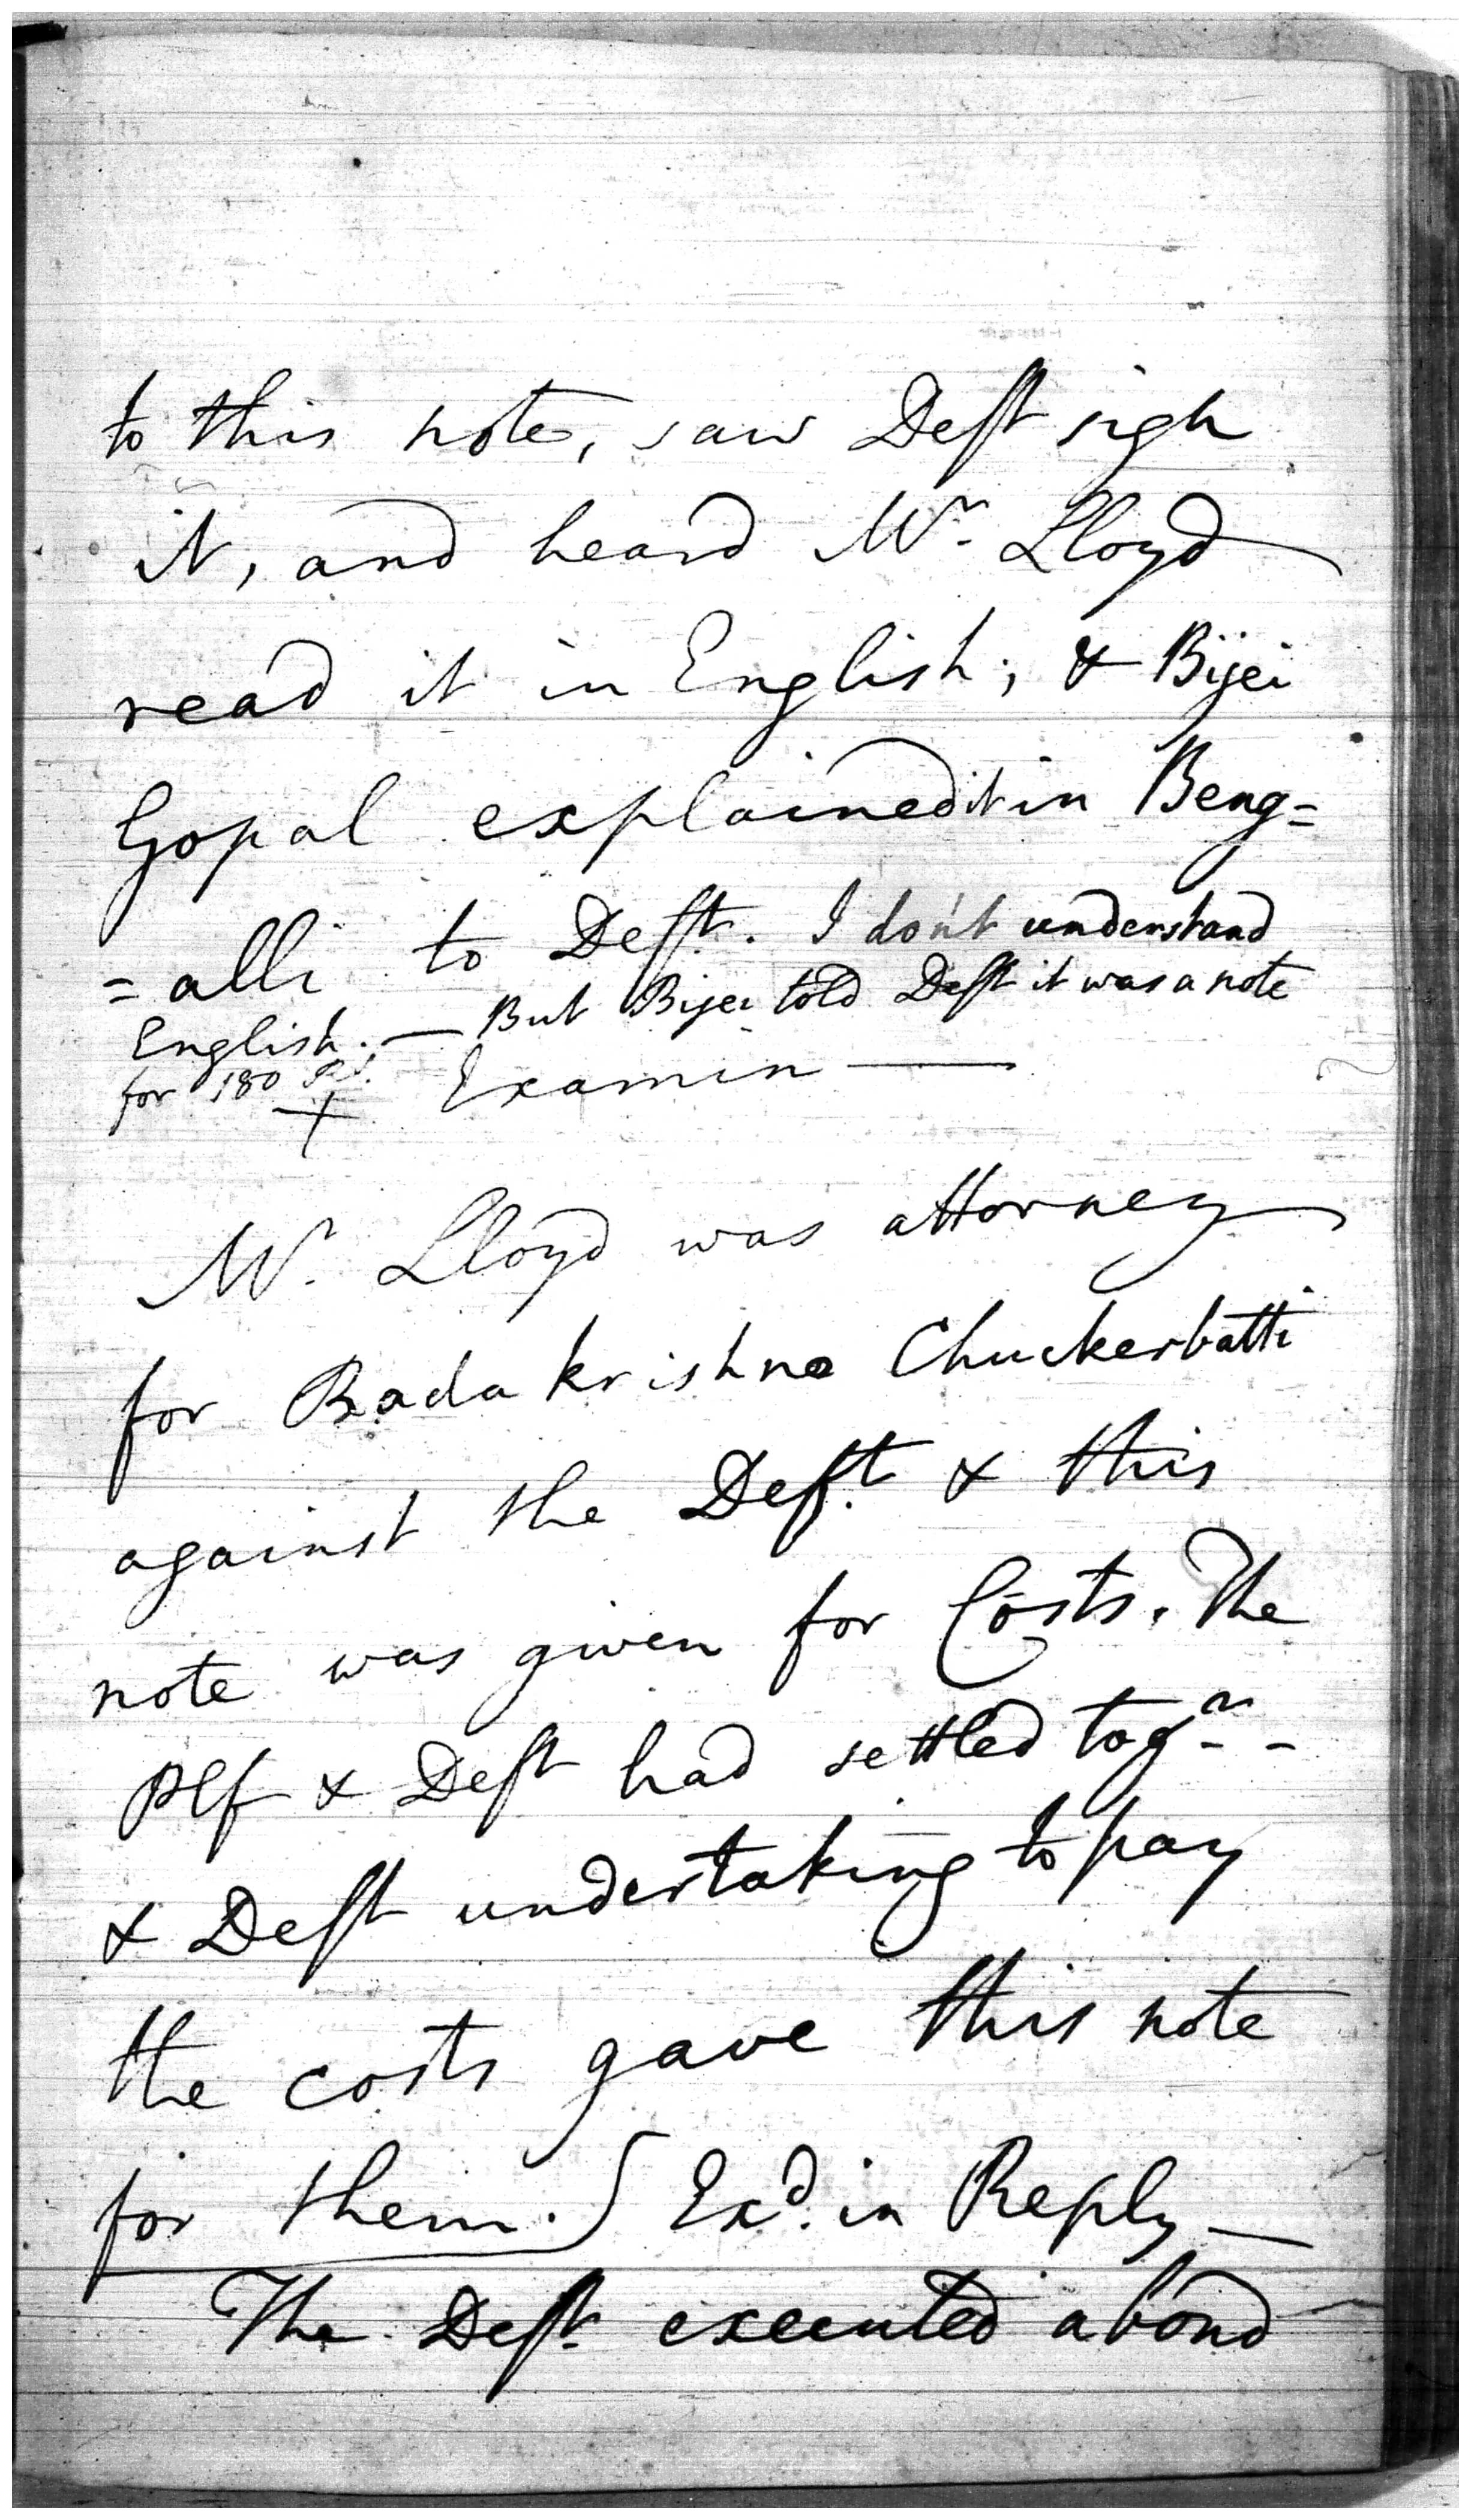 to this note, saw Deft sign
it, and heard Mr. Lloyd
read it in English, & Bijei
Gopal explained it in Beng=
=alli to Deft. I don't understand
English. — But Bijei told Deft it was a note
for 180 Rs.
+ Examin —
Mr. Lloyd was attorney
for Radakrishna Chuckerbatti
against the Deft. & this
note was given for Costs. The
Plf & Deft had settled togr. -
& Deft undertaking to pay
the costs gave this note
for them.) Exd. in Reply —
The Deft. executed a bond